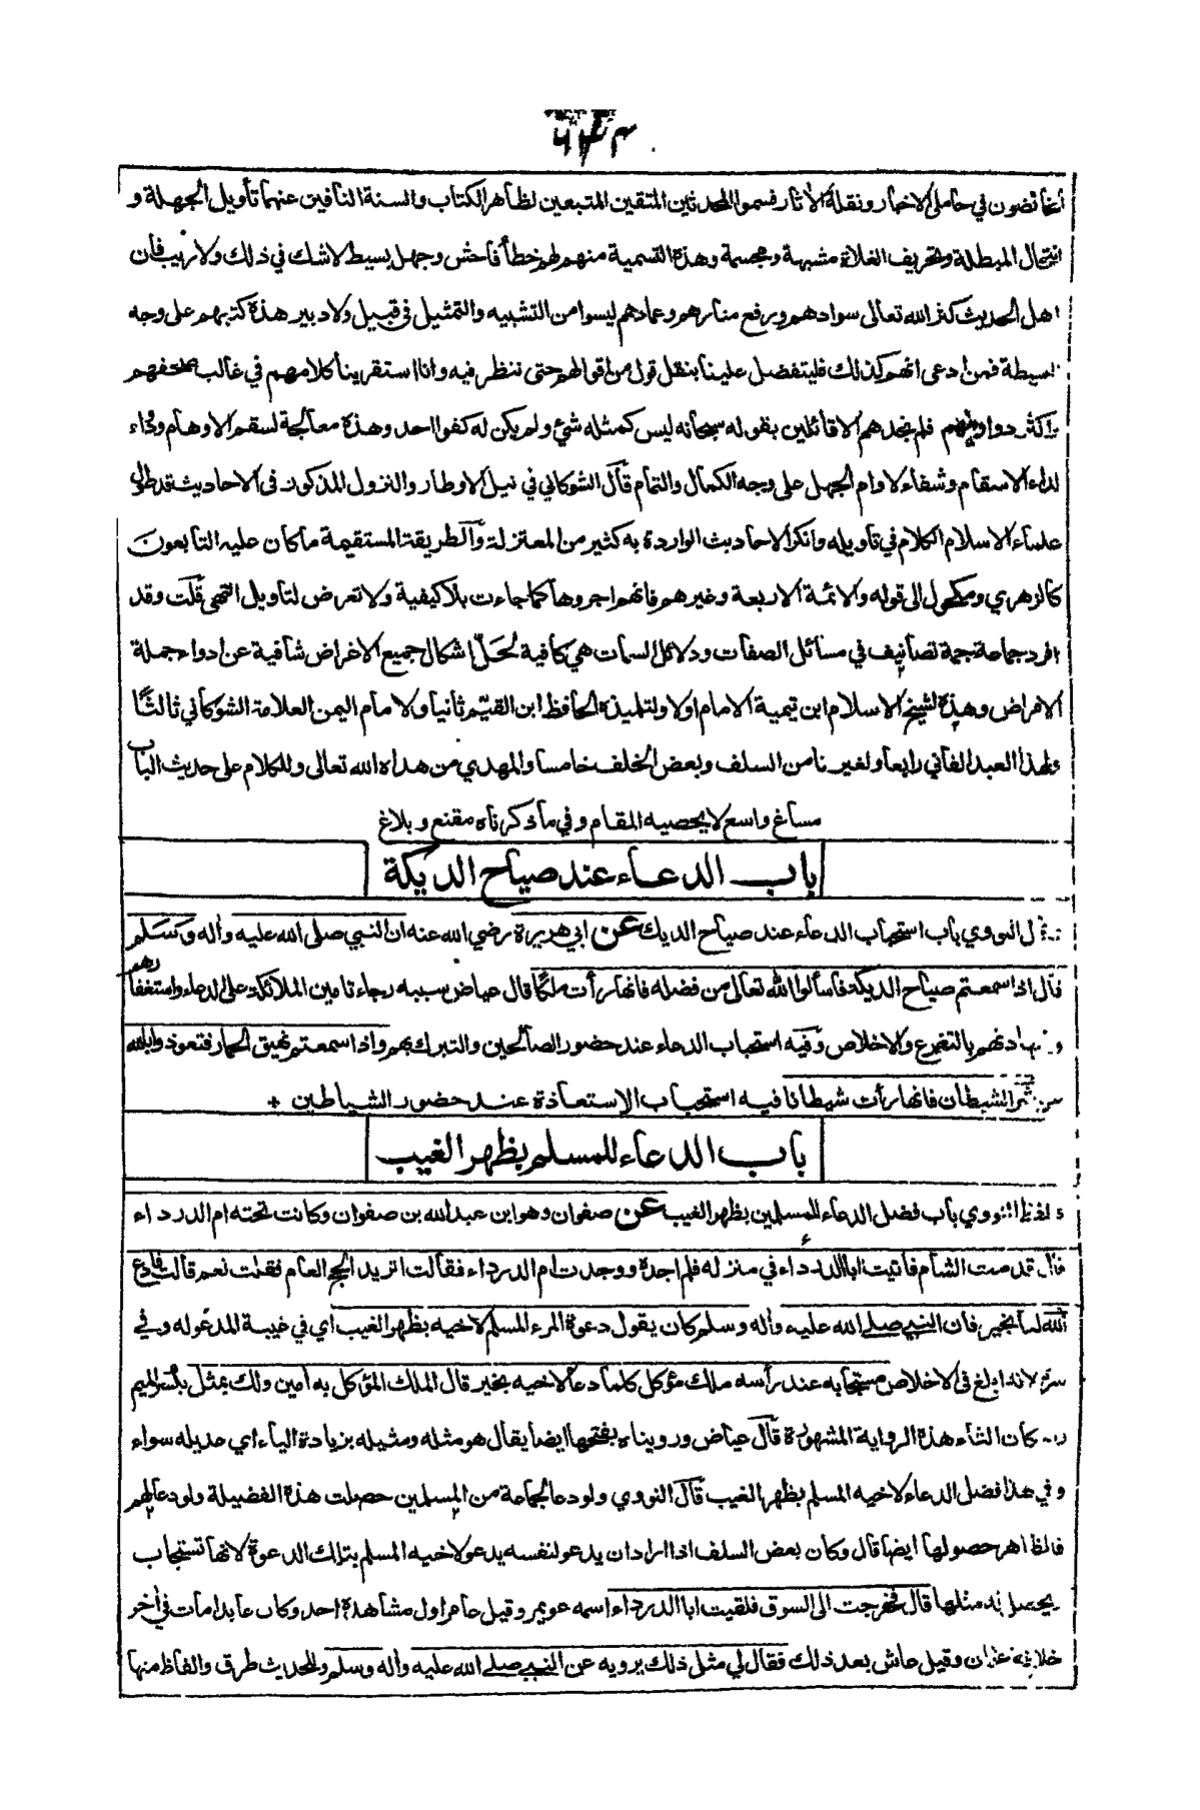 الخائضون في حاملي الاخبار ونقلة الآثار فسموا المحدثين المتقين المتبعين لظاهر الكتاب والسنة النافين عنهما تأويل الجهلة و
انتحال المبطلة وتحريف الغلاة مشبهة ومجسمة وهذه التسمية منهم لهم خطأ فاحش وجهل بسيط لا شك في ذلك ولا ريب فأن
اهل الحديث كثر الله تعالى سوادهم ورفع منارهم وعمادهم ليسوا من التشبيه والتمثيل في قبيل ولا دبير هذه كتبهم على وجه
البسيطة فمن ادعى انهم كذلك فليتفضل علينا بنقل قول من اقوالهم حتى ننظر فيه وانا استقرينا كلامهم في غالب صحفهم
واكثر دواوينهم فلم نجدهم الا قائلين بقوله سبحانه ليس كمثله شئ ولم يكن له كفوا احد وهذه معالجة لسقم الاوهام ودواء
لداء الاسقام وشفاء لاوام الجهل على وجه الكمال والتمام قال الشوكاني في نيل الاوطار والنزول المذكور في الاحاديث قد طول
علماء الاسلام الكلام في تأويله وانكر الاحاديث الواردة به كثير من المعتزلة والطريقة المستقيمة ما كان عليه التابعون
كالزهري ومكحول الى قوله والائمة الاربعة وغيرهم فانهم اجروها كما جاءت بلا كيفية ولا تعرض لتأويل انتهى قلت وقد
افرد جماعة جمة تصانيف في مسائل الصفات ودلائل السمات هي كافية لحل اشكال جميع الاغراض شافية عن ادواء جملة
الامراض وهذه لشيخ الاسلام ابن تيمية الامام اولا ولتلميذه الحافظ ابن القيم ثانيا ولامام اليمن العلامة الشوكاني ثالثا
ولهذا العبد الفاني رابعا ولغيرنا من السلف وبعض الخلف خامسا والمهدي من هداه الله تعالى وللكلام على حديث الباب
مساغ واسع لا يحصيه المقام وفي ما ذكرناه مقنع وبلاغ
باب الدعاء عند صياح الديكة
قال النووي باب استحباب الدعاء عند صياح الديك عن ابي هريرة رضي الله عنه ان النبي صلى الله عليه وأله وسلم
قال اذا سمعتم صياح الديكة فاسألوا الله تعالى من فضله فانها رأت ملكا قال عياض سببه رجاء تامين الملائكة على الدعاء واستغفارهم
وشهادتهم بالتضرع والاخلاص وفيه استحباب الدعاء عند حضور الصالحين والتبرك بهم واذا سمعتم نهيق الحمار فتعوذوا بالله
من شر الشيطان فانها رأت شيطانا فيه استحباب الاستعاذة عند حضور الشياطين +
باب الدعاء للمسلم بظهر الغيب
ولفظ النووي باب فضل الدعاء للمسلمين بظهر الغيب عن صفوان وهو ابن عبد الله بن صفوان وكانت تحته ام الدرداء
قال قدمت الشام فاتيت ابا الدرداء في منزله فلم اجده ووجدت ام الدرداء فقالت اتريد الحج العام فقلت نعم قالت فادع
الله لنا بخير فان النبي صلى الله عليه وأله وسلم كان يقول دعوة المرء المسلم لاخيه بظهر الغيب اي في غيبة المدعو له وفي
سره لانه ابلغ في الاخلاص مستجابة عند رأسه ملك مؤكل كلما دعا لاخيه بخير قال الملك المؤكل به أمين ولك بمثل بكسر الميم
واسكان الثاء هذه الرواية المشهورة قال عياض ورويناه بفتحها ايضا يقال هو مثله ومثيله بزيادة الياء اي عديله سواء
وفي هذا فضل الدعاء لاخيه المسلم بظهر الغيب قال النووي ولو دعا لجماعة من المسلمين حصلت هذه الفضيلة ولو دعا لهم
فالظاهر حصولها ايضا قال وكان بعض السلف اذا اراد ان يدعو لنفسه يدعو لاخيه المسلم بتلك الدعوة لانها تستجاب
يحصل له مثلها قال فخرجت الى السوق فلقيت ابا الدرداء اسمه عويمر وقيل عامر اول مشاهده احد وكان عابدا مات في أخر
خلافة عثمان وقيل عاش بعد ذلك فقال لي مثل ذلك يرويه عن النبي صلى الله عليه وأله وسلم وللحديث طرق والفاظ منها